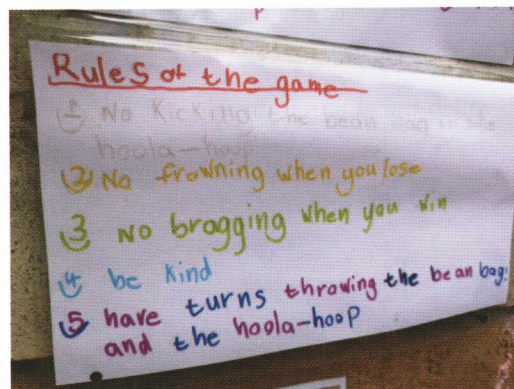 Rules of the game
1 No Kicking the bean bag in the
hoola-hoop
2 No frowning when you lose
3 No bragging when you win
4 be kind
5 have turns throwing the bean bag
and the hoola-hoop